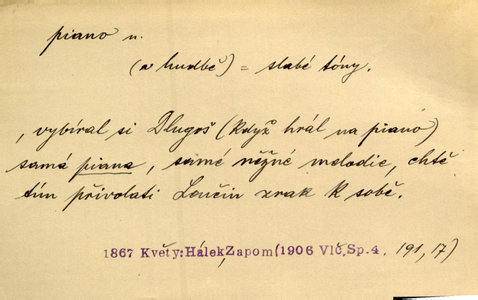 piano n.
(v hudbě) = slabé tóny.
, vybíral si Dlugoš (když hrál na piano)
samá piana, samé něžné melodie, chtě
tím přivolati Loučin zrak k sobě.
1867 Květy: Hálek, Zapom (1906 Vlč, Sp. 4, 191, 17)